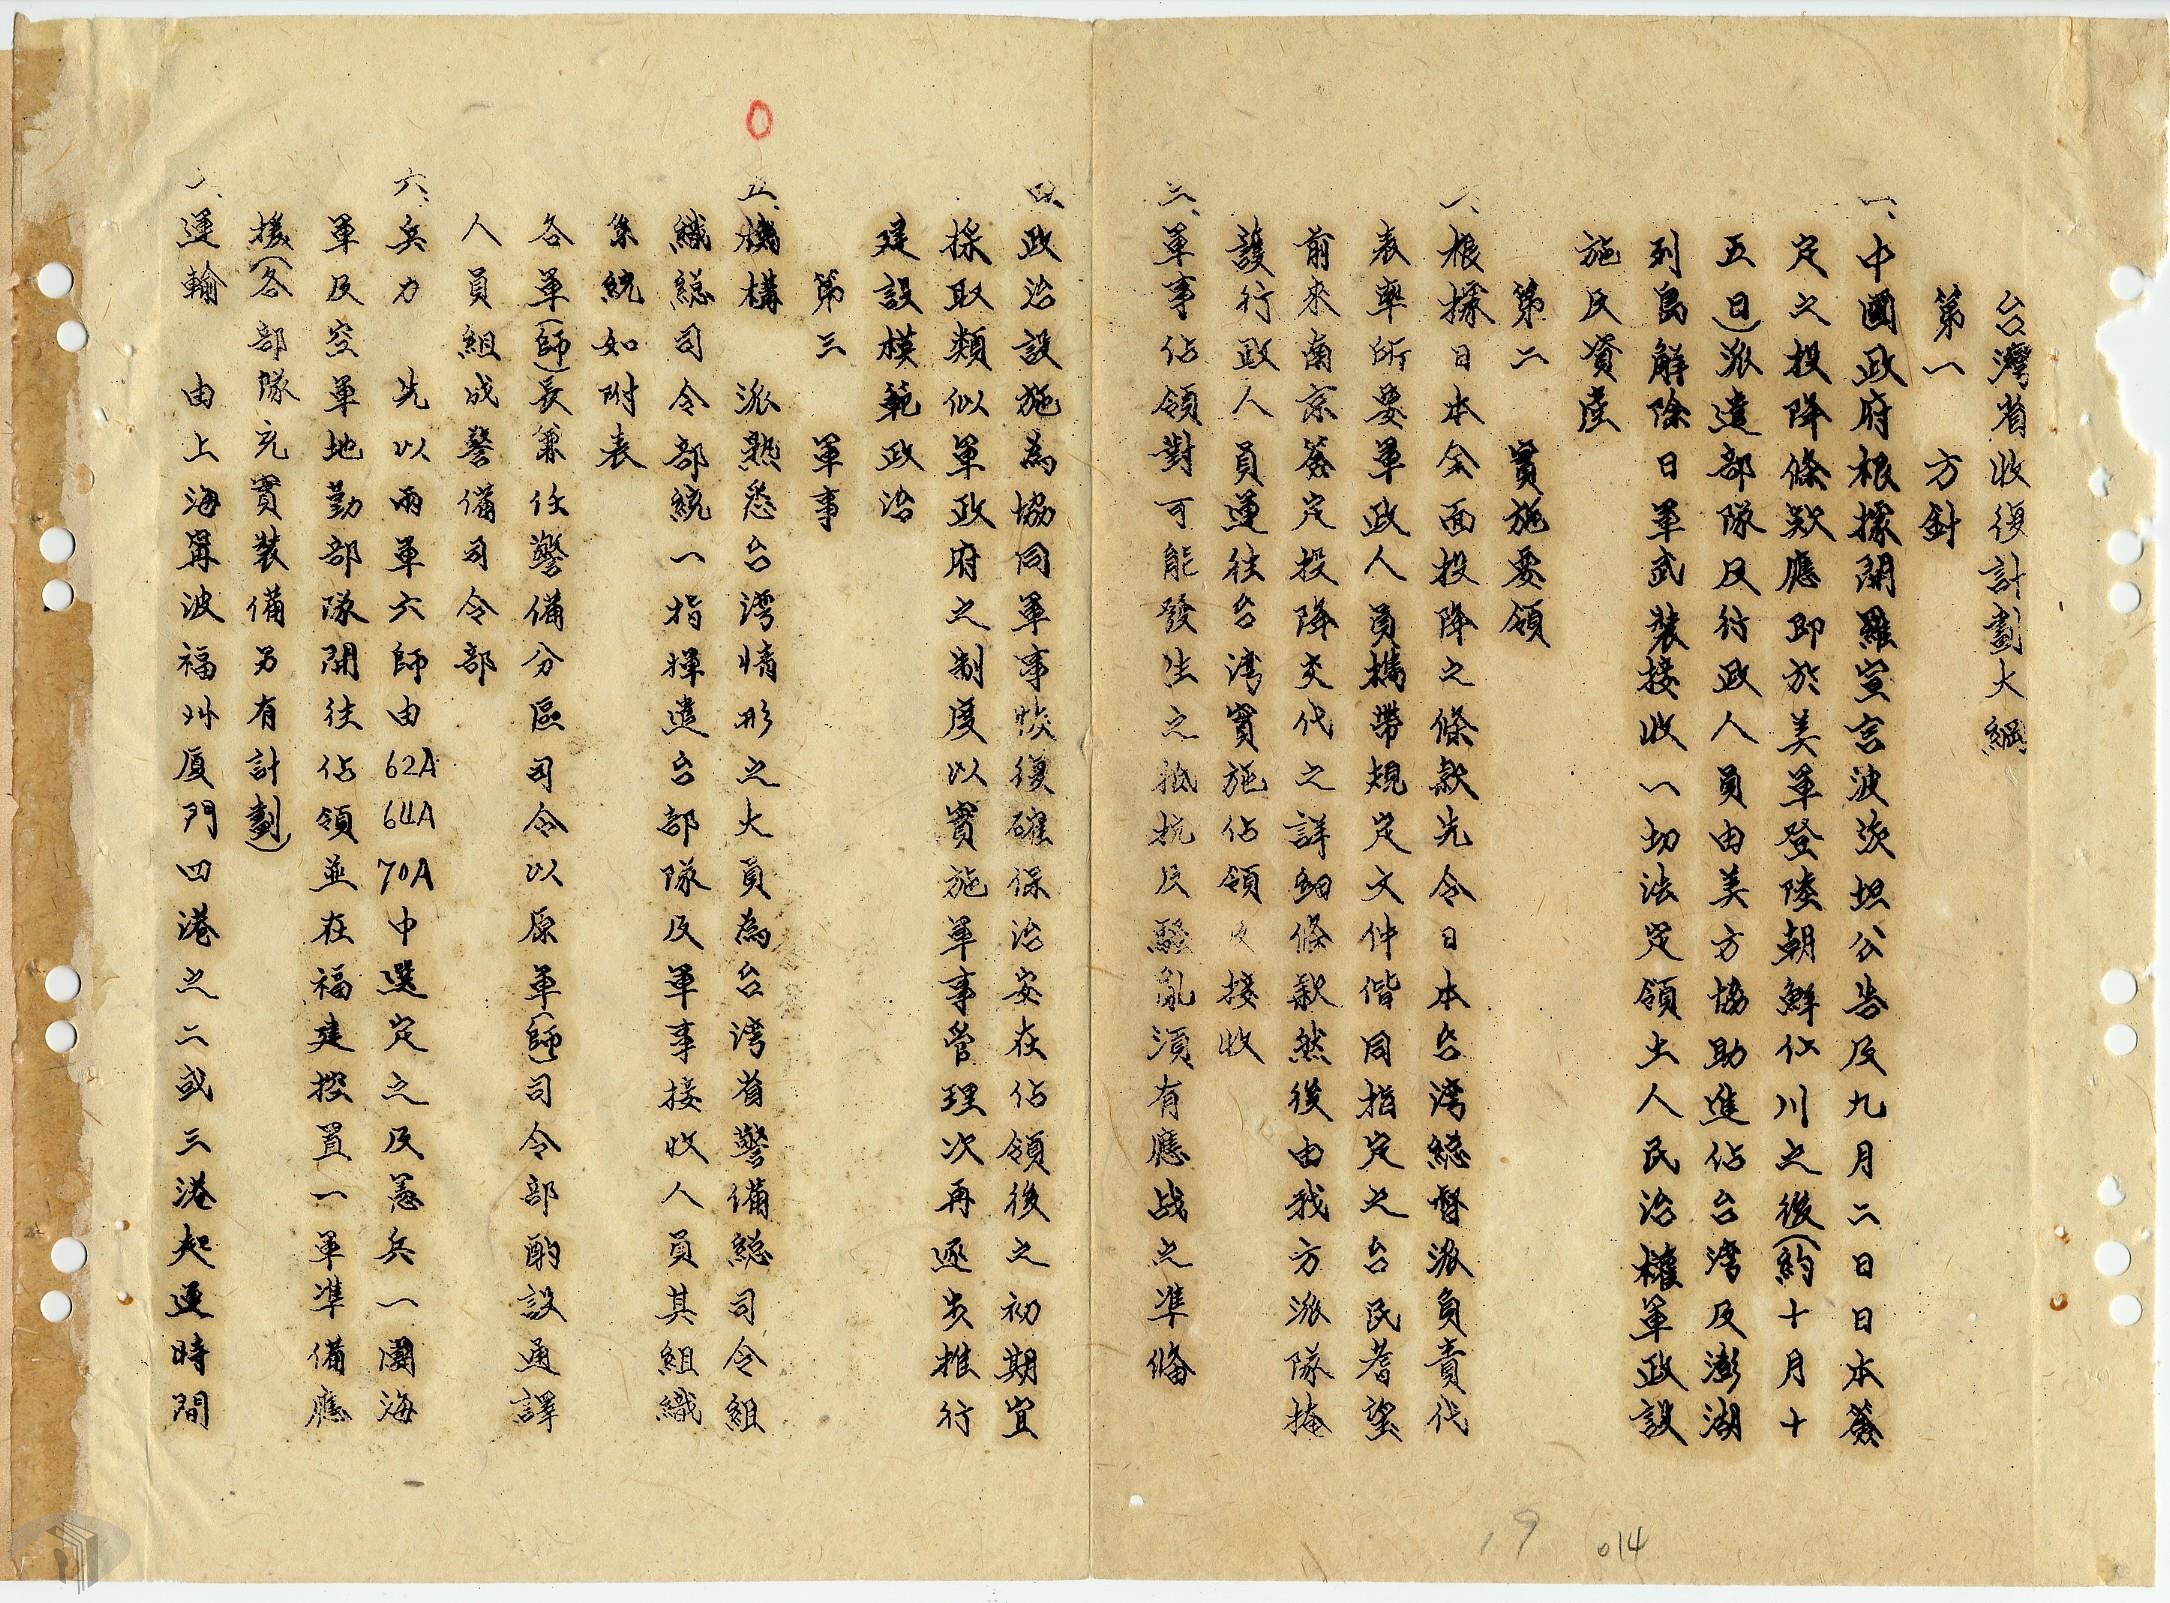 台灣省收復計劃大綱
第一 方針
一、中國政府根據開羅宣言波茨坦公告及九月二日日本簽
定之投降條欵應即於美軍登陸朝鮮仁川之後(約十月十
五日)派遣部隊及行政人員由美方協助進佔台灣及澎湖
列島解除日軍武裝接收一切法定領土人民治權軍政設
施及資產
第二 實施要領
根據日本全面投降之條款先令日本台湾總督派負責代
表率所要軍政人員攜帶規定文件偕同指定之台民耆望
前來南京簽定投降交代之詳細條款然後由我方派隊掩
護行政人員運往台湾實施佔領及接收
三、軍事佔領對可能發生之抵抗及騷亂須有應战之準俻
四、政治設施為協同軍事恢復確保治安在佔領後之初期宜
採取類似軍政府之制度以實施軍事管理次再逐步推行
建設模範政治
第三 軍事
五、機構 派熟悉台湾情形之大員為台湾省警備總司令組
織總司令部統一指揮遣台部隊及軍事接收人員其組織
系統如附表
各軍(師)長兼任警備分區司令以原軍(師)司令部酌設通譯
人員組成警備司令部
六、兵力 先以兩軍六師由62A 64A 70A中選定之及憲兵一團海
軍及空軍地勤部隊開往佔領並在福建控置一軍準備應
援(各部隊充實裝備另有計劃)
運輸 由上海甯波福州厦門四港之二或三港起運時間
19 014